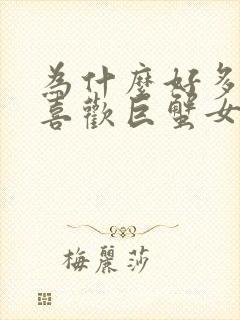 為什麼好多
喜歡巨蟹女
梅麗莎